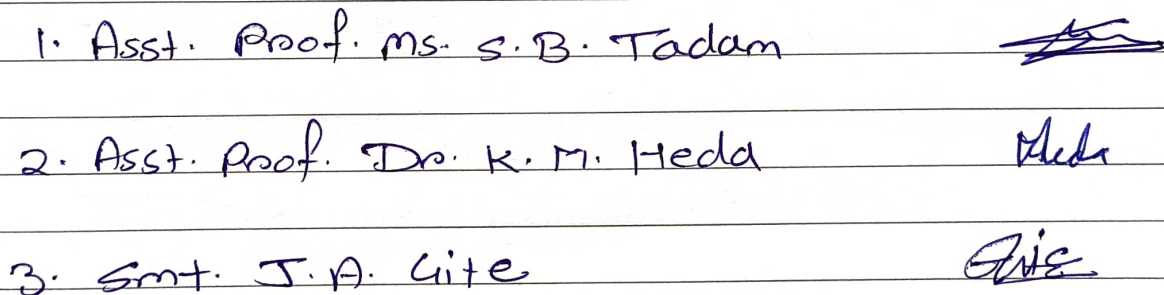 1. Asst. Prof. Ms. S. B. Tadam
2. Asst. Prof. Dr. K. M. Heda Heda
3. Smt. J. A. Gite Gite